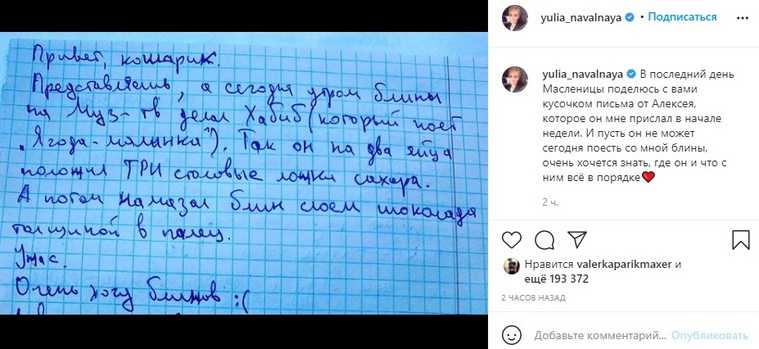 Привет, кошарик.
Представляешь, а сегодня утром блины
на Муз-тв делал Хабиб (который поёт
"Ягода-малинка"). Так он на два яйца
положил ТРИ столовые ложки сахара.
А потом намазал блин слоем шоколада
толщиной в палец.
Ужас.
Очень хочу блинов :(
yulia_navalnaya • Подписаться
yulia_navalnaya В последний день
Масленицы поделюсь с вами
кусочком письма от Алексея,
которое он мне прислал в начале
недели. И пусть он не может
сегодня поесть со мной блины,
очень хочется знать, где он и что с
ним всё в порядке❤
2 ч.
Нравится valerkaparikmaxer и
ещё 193 372
2 ЧАСОВ НАЗАД
Добавьте комментарий... Опубликовать